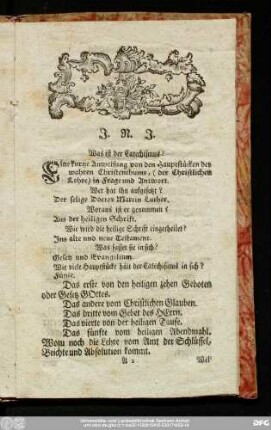 J. N. J.
Was ist der Catechismus?
Eine kurze Anweisung von den Hauptstücken des
wahren Christenthums, (der Christlichen
Lehre) in Frage und Antwort.
Wer hat ihn aufgesetzt?
Der selige Doctor Martin Luther.
Woraus ist er genommen?
Aus der heiligen Schrift.
Wie wird die heilige Schrift eingetheilet?
Ins alte und neue Testament.
Was fasset sie in sich?
Gesetz und Evangelium.
Wie viele Hauptstücke hält der Catechismus in sich?
Fünfe.
Das erste von den heiligen zehen Geboten
oder Gesetz GOttes.
Das andere vom Christlichen Glauben.
Das dritte vom Gebet des HErrn.
Das vierte von der heiligen Taufe.
Das fünfte vom heiligen Abendmahl.
Wozu noch die Lehre vom Amt der Schlüssel,
Beichte und Absolution kommt.
A 2
Wel⸗
DFG